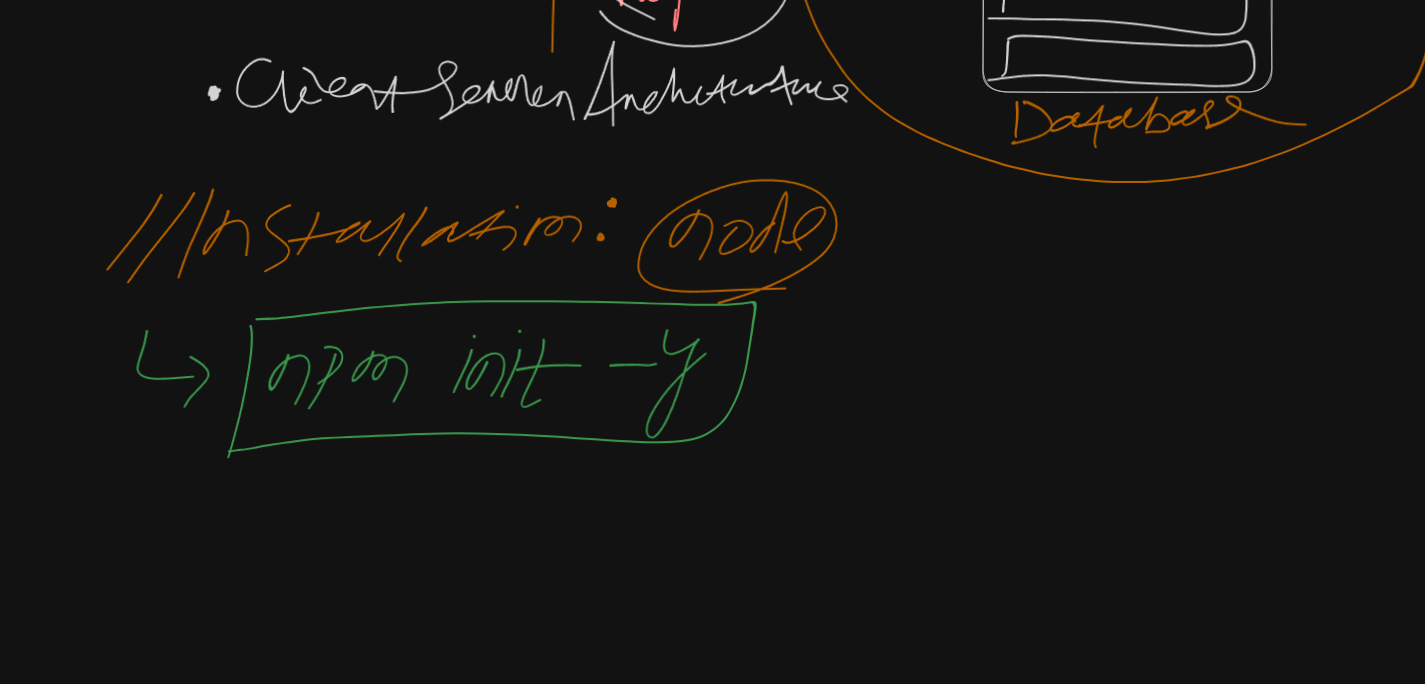 • Client Server Architecture
Database
// Installation: node
↳ npm init -y